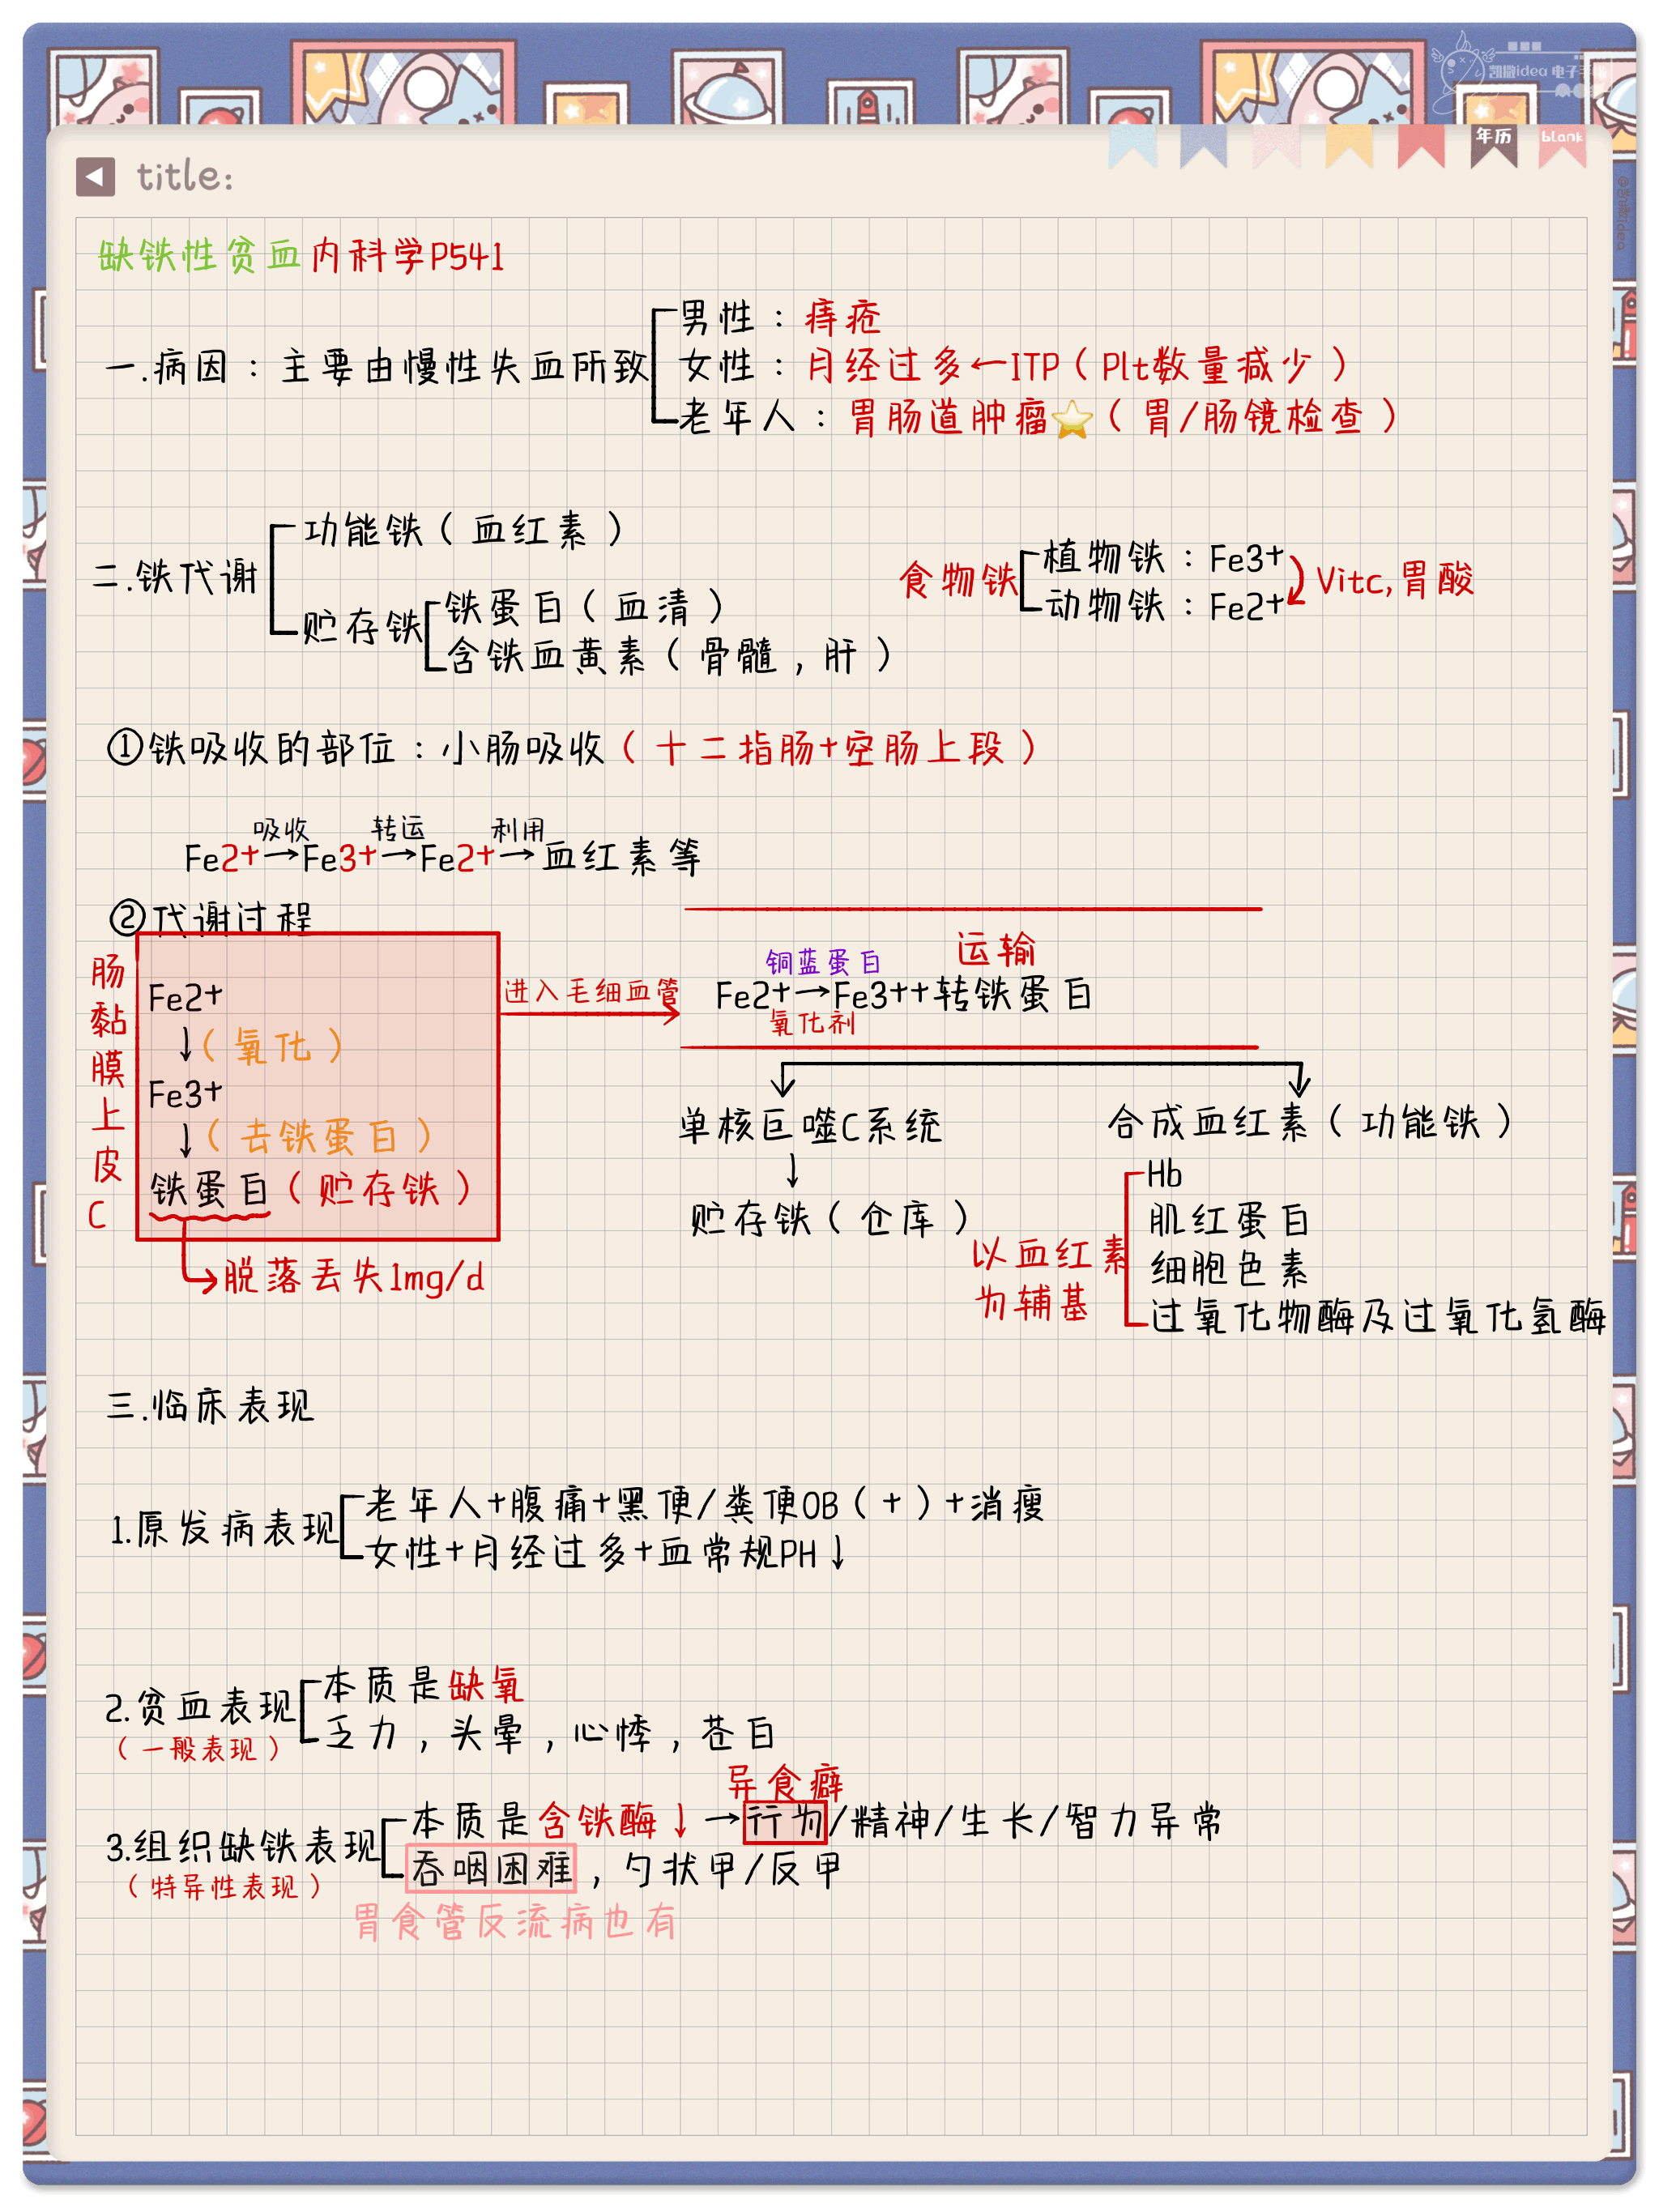 凯微idea 电子手
年历
blank
title:
缺铁性贫血内科学P541
男性：痔疮
一.病因：主要由慢性失血所致
女性：月经过多←ITP（Plt数量减少）
老年人：胃肠道肿瘤⭐（胃/肠镜检查）
功能铁（血红素）
二.铁代谢
贮存铁
铁蛋白（血清）
含铁血黄素（骨髓，肝）
食物铁
植物铁：Fe3+
动物铁：Fe2+
Vitc,胃酸
①铁吸收的部位：小肠吸收（十二指肠+空肠上段）
吸收 转运 利用
Fe2+→Fe3+→Fe2+→血红素等
②代谢过程
肠黏膜上皮C
Fe2+
↓（氧化）
Fe3+
↓（去铁蛋白）
铁蛋白（贮存铁）
脱落丢失1mg/d
进入毛细血管
运输
铜蓝蛋白
Fe2+→Fe3++转铁蛋白
氧化剂
单核巨噬C系统
↓
贮存铁（仓库）
合成血红素（功能铁）
以血红素
为辅基
Hb
肌红蛋白
细胞色素
过氧化物酶及过氧化氢酶
三.临床表现
1.原发病表现
老年人+腹痛+黑便/粪便OB（+）+消瘦
女性+月经过多+血常规PH↓
2.贫血表现
（一般表现）
本质是缺氧
乏力，头晕，心悸，苍白
异食癖
3.组织缺铁表现
（特异性表现）
本质是含铁酶↓→行为/精神/生长/智力异常
吞咽困难，勺状甲/反甲
胃食管反流病也有